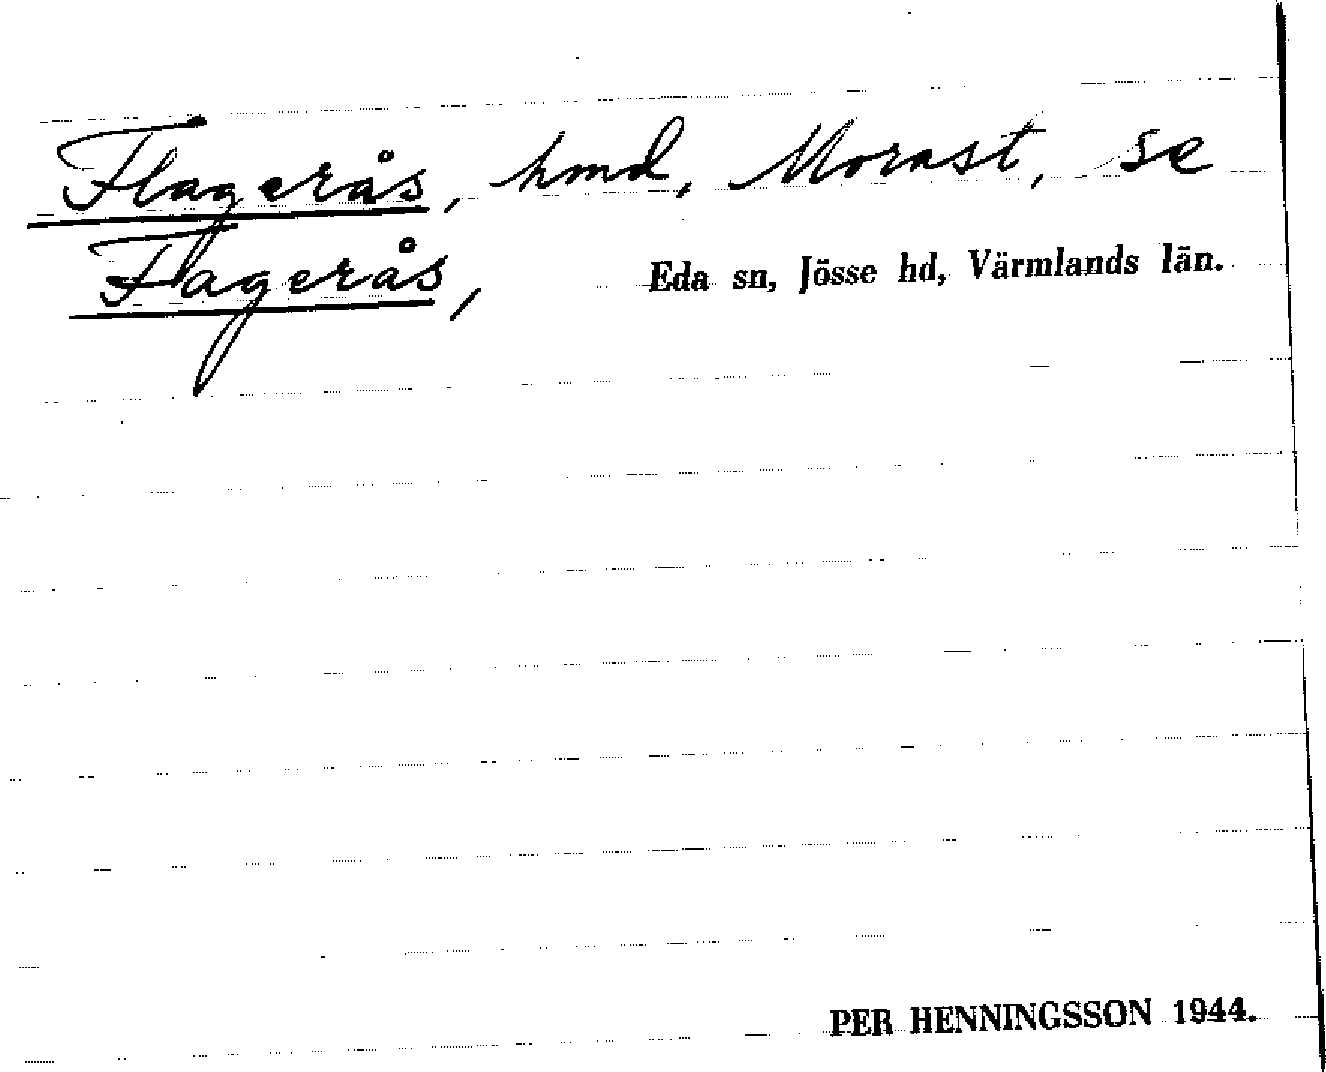 Flagerås, hmd, Morast, se
Flagerås,
Eda sn, Jösse hd, Värmlands län.
PER HENNINGSSON 1944.